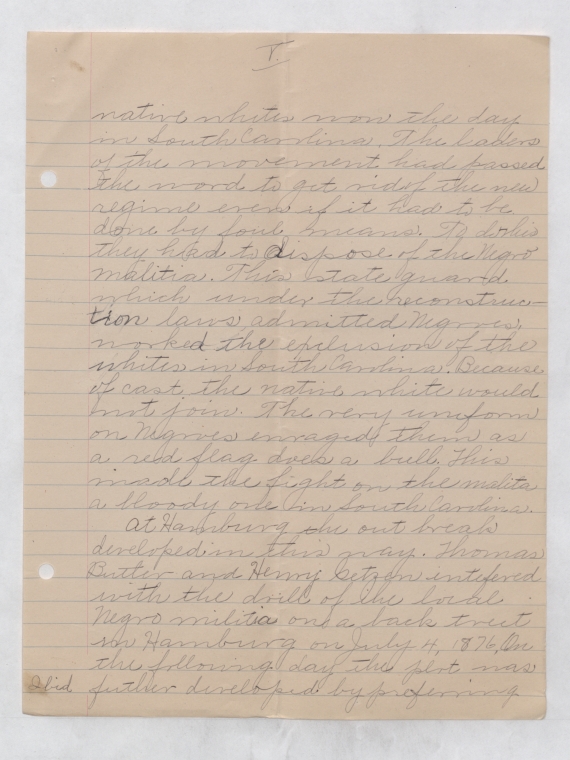 V.
native whites won the day
in South Carolina. The leaders
of the movement had passed
the word to get rid of the new
regime even if it had to be
done by foul means. To do this
they had to dispose of the Negro
malitia. This state guard
which under the reconstruc-
tion laws admitted Negroes,
worked the exclusion of the
whites in South Carolina. Because
of cast the native white would
not join. The very uniform
on Negroes enraged them as
a red flag does a bull. This
made the fight on the malita
a bloody one in South Carolina.
At Hamburg the out break
developed in this way. Thomas
Butler and Henry Getzen intefered
with the drill of the local
Negro militia on a back treet
in Hamburg on July 4, 1876, On
the following day the plot was
Ibid futher developed by preferring